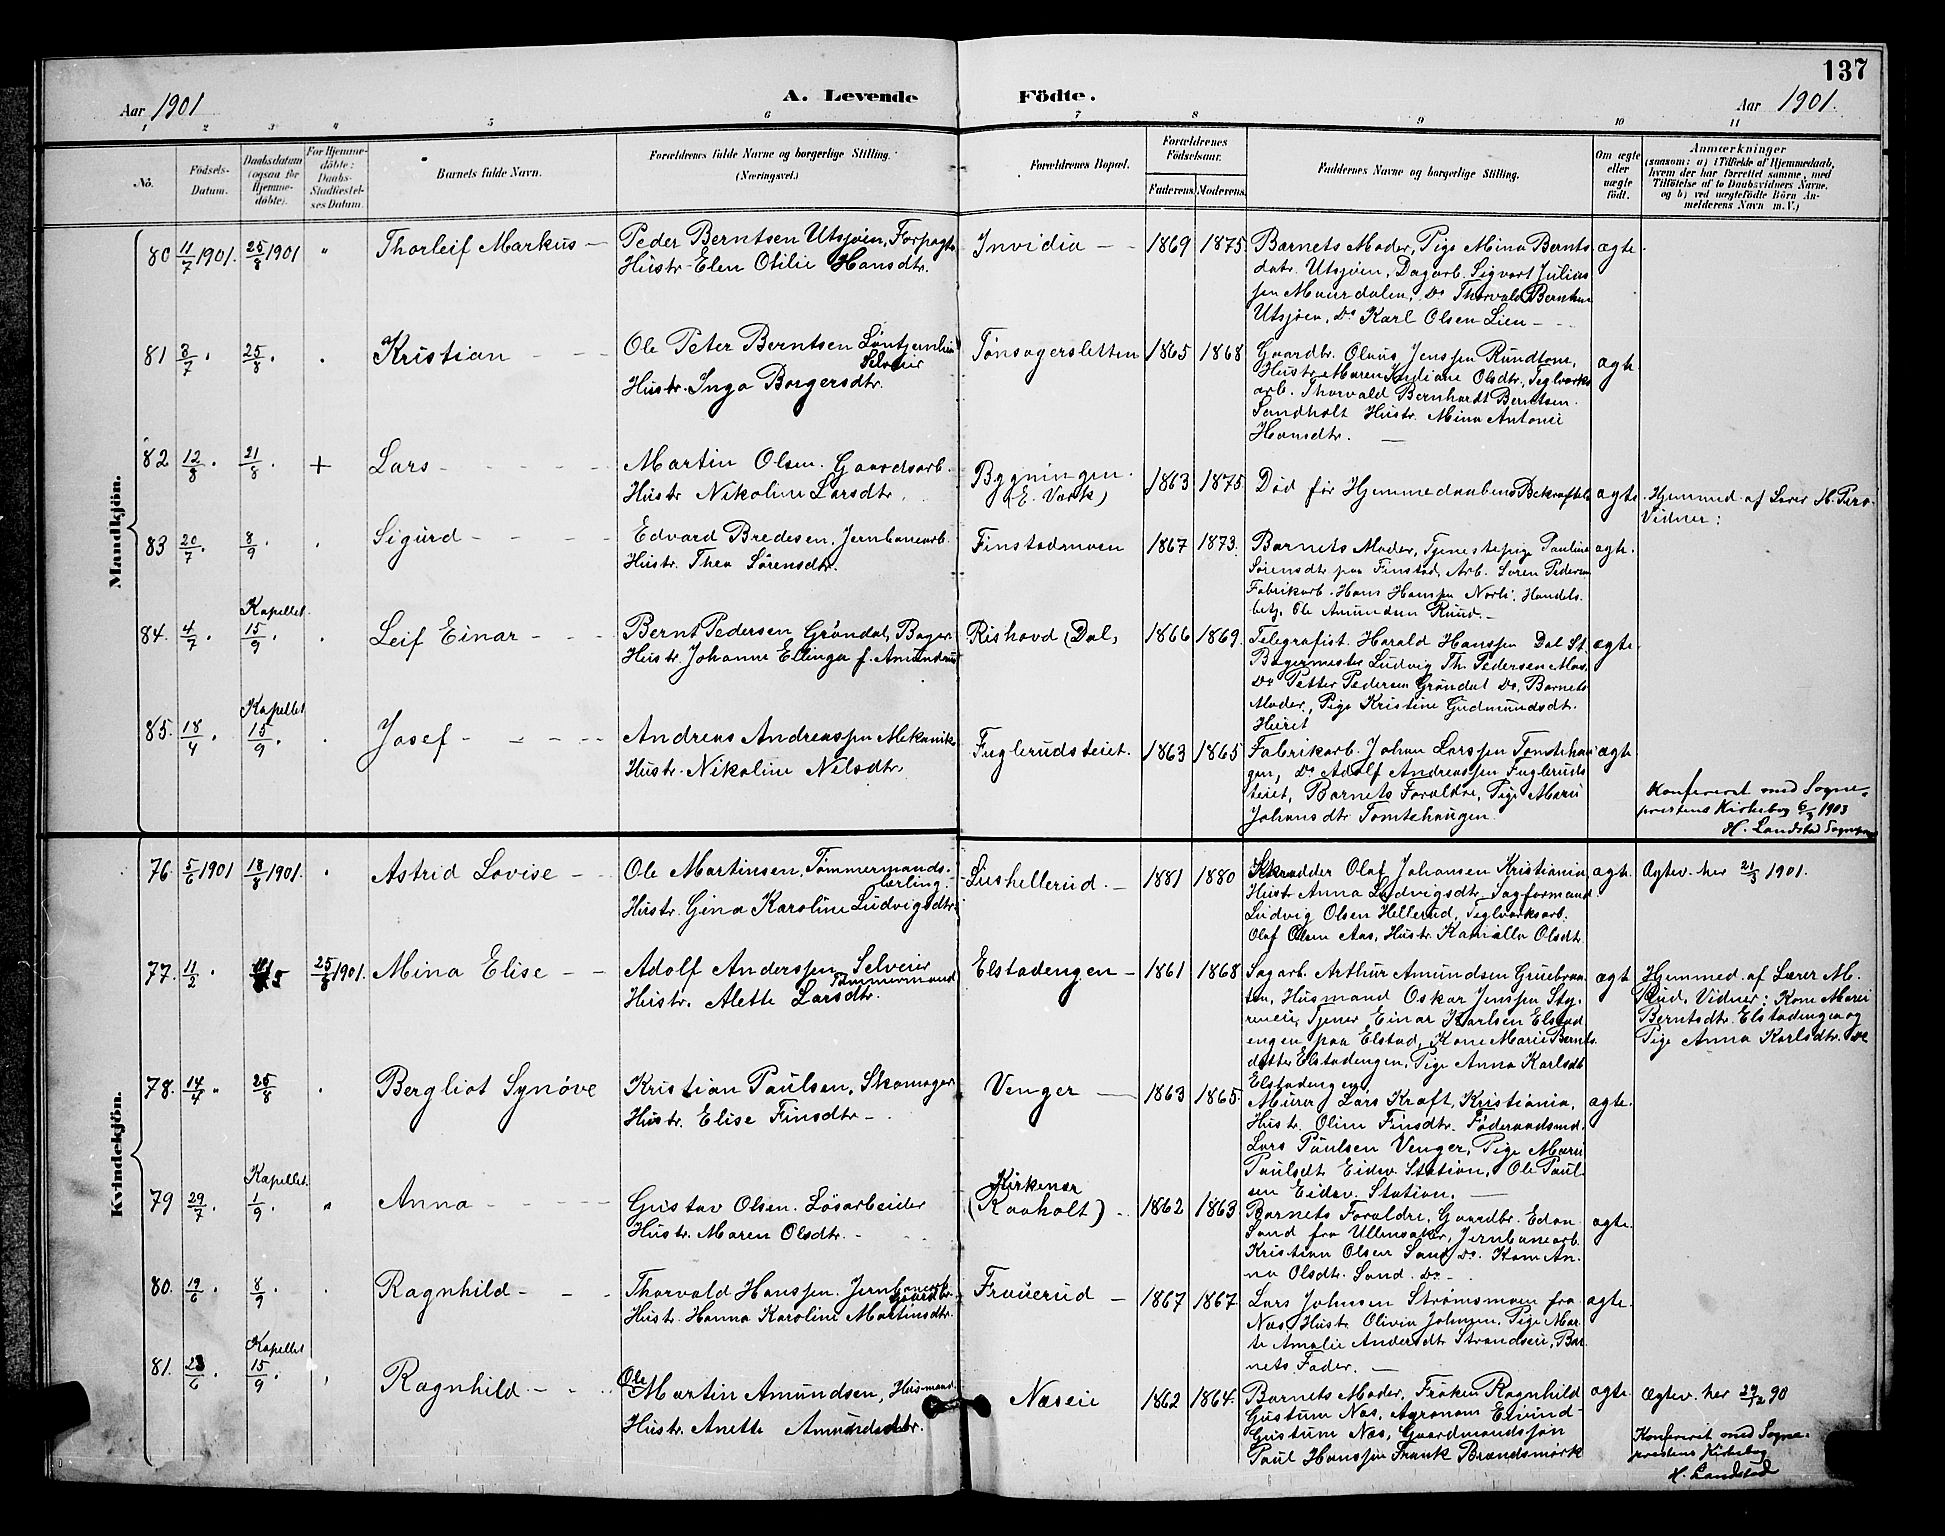 137
Aar 1901
A. Levende
Födte.
Aar 1901.
1 2 3 4 5 6 7 8 9 10 11
No.
Födsels-Datum.
Daabsdatum (ogsaa for Hjemme-döbte).
For Hjemme-döbte: Daabs-Stadfæstel-ses Datum.
Barnets fulde Navn.
Forældrenes fulde Navne og borgerlige Stilling.
(Næringsvei.)
Forældrenes Bopæl.
Forældrenes Födselsaar.
Faderens. Moderens.
Faddernes Navne og borgerlige Stilling.
Om ægte eller uægte födt.
Anmærkninger
(saasom: a) i Tilfælde af Hjemmedaab,
hvem der har forrettet samme, med
Tilföielse af to Daabsvidners Navne,
og b) ved uægtefödte Börn An-
melderens Navn m. V.)
Mandkjön.
80 11/7 1901. 25/8 1901 " Thorleif Markus –
Peder Berntsen Utsjøen, Forpagt.
Hustr. Elen Otilie Hansdtr.
Invidia – – 1869 1875
Barnets Moder, Pige Mina Bernts
datr. Utsjøen, Dagarb. Sigvart Julius
sen Maurdalen, Do Thorvald Berntsen
Utsjøen, Do Karl Olsen Lien –
ægte.
81 3/7 " 25/8 " Kristian
Ole Peter Berntsen
Selveier
Hustr. Inga Borgersdtr.
Tønsagersletten 1865 1868
Gaardbr. Olaus Jenssen Rundtom,
Hustr. Maren Indiane Olsdtr., Teglværks
arb. Thorvald Bernhardt Berntsen
Sandholt Hustr. Mina Antonie
Hansdtr. –
ægte
82 12/8 " 21/8 " + Lars
Martin Olsen. Gaardsarb.
Hustr. Nikoline Larsdtr.
Bygningen.
(E. Værk) 1863 1875
Død før Hjemmedaabens Bekræftelse
ægte
Hjemmed. af Lærer
Vidner:
83 20/7 " 8/9 " Sigurd
Edvard Bredesen, Jernbanearb.
Hustr. Thea Sørensdtr.
Finstadmoen 1867 1873.
Barnets Moder, Tjenestepige Pauline
Sørensdtr paa Finstad, Arb. Søren Pedersen
Fabrikarb. Hans Hanssen Norli, Handels
betj. Ole Amundsen Ruud. –
ægte.
84. 4/7 " Kapellet 15/9 " Leif Einar
Bernt Pedersen Grøndal, Bager.
Hustr. Johanne Ellinga f. Amundsen
Rishovd (Dal) 1866 1869.
Telegrafist Harald Hanssen Dal St.
Bagermester Ludvig Th. Pedersen Moss
Do Petter Pedersen Grøndal Do, Barnets
Moder, Pige Kristine Gudmundsdt.
ægte.
85. 18/4 " Kapellet 15/9 " Josef
Andreas Andreassen Mekaniker
Hustr. Nikoline Nilsdtr.
Fuglerudsteiet. 1863 1865
Fabrikarb. Johan Larssen Tomtehau
gen, Do Adolf Andreassen Fugleruds
teiet, Barnets Forældre, Pige Marie
Johansdtr Tomtehaugen.
ægte
Konfereret med Sogne-
prestens Kirkebog 6/3 1903
H. Landstad Sognepr.
Kvindekjön.
76. 5/6 1901 18/8 1901. " Astrid Lovise –
Ole Martinsen, Tømmermands-
lærling.
Hustr. Gina Karoline Ludvigsdtr.
Liushellerud. – 1881 1880
Skrædder Olaf Johansen Kristiania
Hustr Anna Ludvigsdtr, Sagformand
Ludvig Olsen Hellerud, Teglværksarb.
Olaf Olsen Aas, Hustr. Kamilla Olsdt.
ægte.
Ægtev. her 21/3 1901.
77. 11/2 " 25/8 1901. Mina Elise –
Adolf Anderssen Selveier
Tømmermand
Hustr. Alette Larsdtr.
Elstadengen – 1861 1868
Sagarb. Arthur Amundsen Gruebraa-
ten, Husmand Oskar Jenssen Sty-
reneie, Tjener Einar Karlsen Elstad
engen paa Elstad, Kone Marie Bernts
datter Elstadengen, Pige Anna Karlsdt
Elstadengen.
ægte
Hjemmed. af Lærer M.
Rud, Vidner: Kone Marie
Berntsdtr. Elstadengen og
Pige Anna Karlsdtr. Do
78. 14/4 " 25/8 " Bergliot Synøve
Kristian Paulsen, Skomager
Hustr. Elise Finsdtr –
Venger – 1863 1865.
Murer Lars Kraft, Kristiania,
Hustr. Oline Finsdtr. Føderaadsmd.
Lars Paulsen Venger, Pige Marie
Paulsdt Eidsv Station, Ole Paul-
sen Eidsv. Station. –
ægte.
79 29/7 " Kapellet. 1/9 " Anna
Gustav Olsen. Løsarbeider
Hustr. Maren Olsdtr. –
Kirkenær
(Raaholt) 1862 1863
Barnets Forældre, Gaardbr. Edvan
Sand fra Ullensaker, Jernbanearb.
Kristian Olsen Sand Do. Kone An-
na Olsdtr. Sand. Do –
ægte.
80. 19/6 " 8/9 " Ragnhild
Thorvald Hanssen, Jernbanearb.
Gaardbr.
Hustr. Hanna Karoline Martinsdtr.
Frauerud – 1867 1867
Lars Johnsen Strømsmoen fra
Næs, Hustr. Olivia Johnsen, Pige Mar-
te Amalie Andersdtr Strandseie, Bar-
nets Fader. –
ægte.
81. 28/6 " Kapellet 15/9 " Ragnhild
Ole Martin Amundsen, Husmand.
Hustr. Anette Amundsdtr.
Næseie 1862 1864.
Barnets Moder, Frøken Ragnhild
Gustum Næs, Agronom Eivind
Gustum Næs, Gaardmandssøn
Paul Hanssen Frank Brændsmork
ægte
Ægtev. her 29/12 90
Konfereret med Sogne-
prestens Kirkebog
H. Landstad